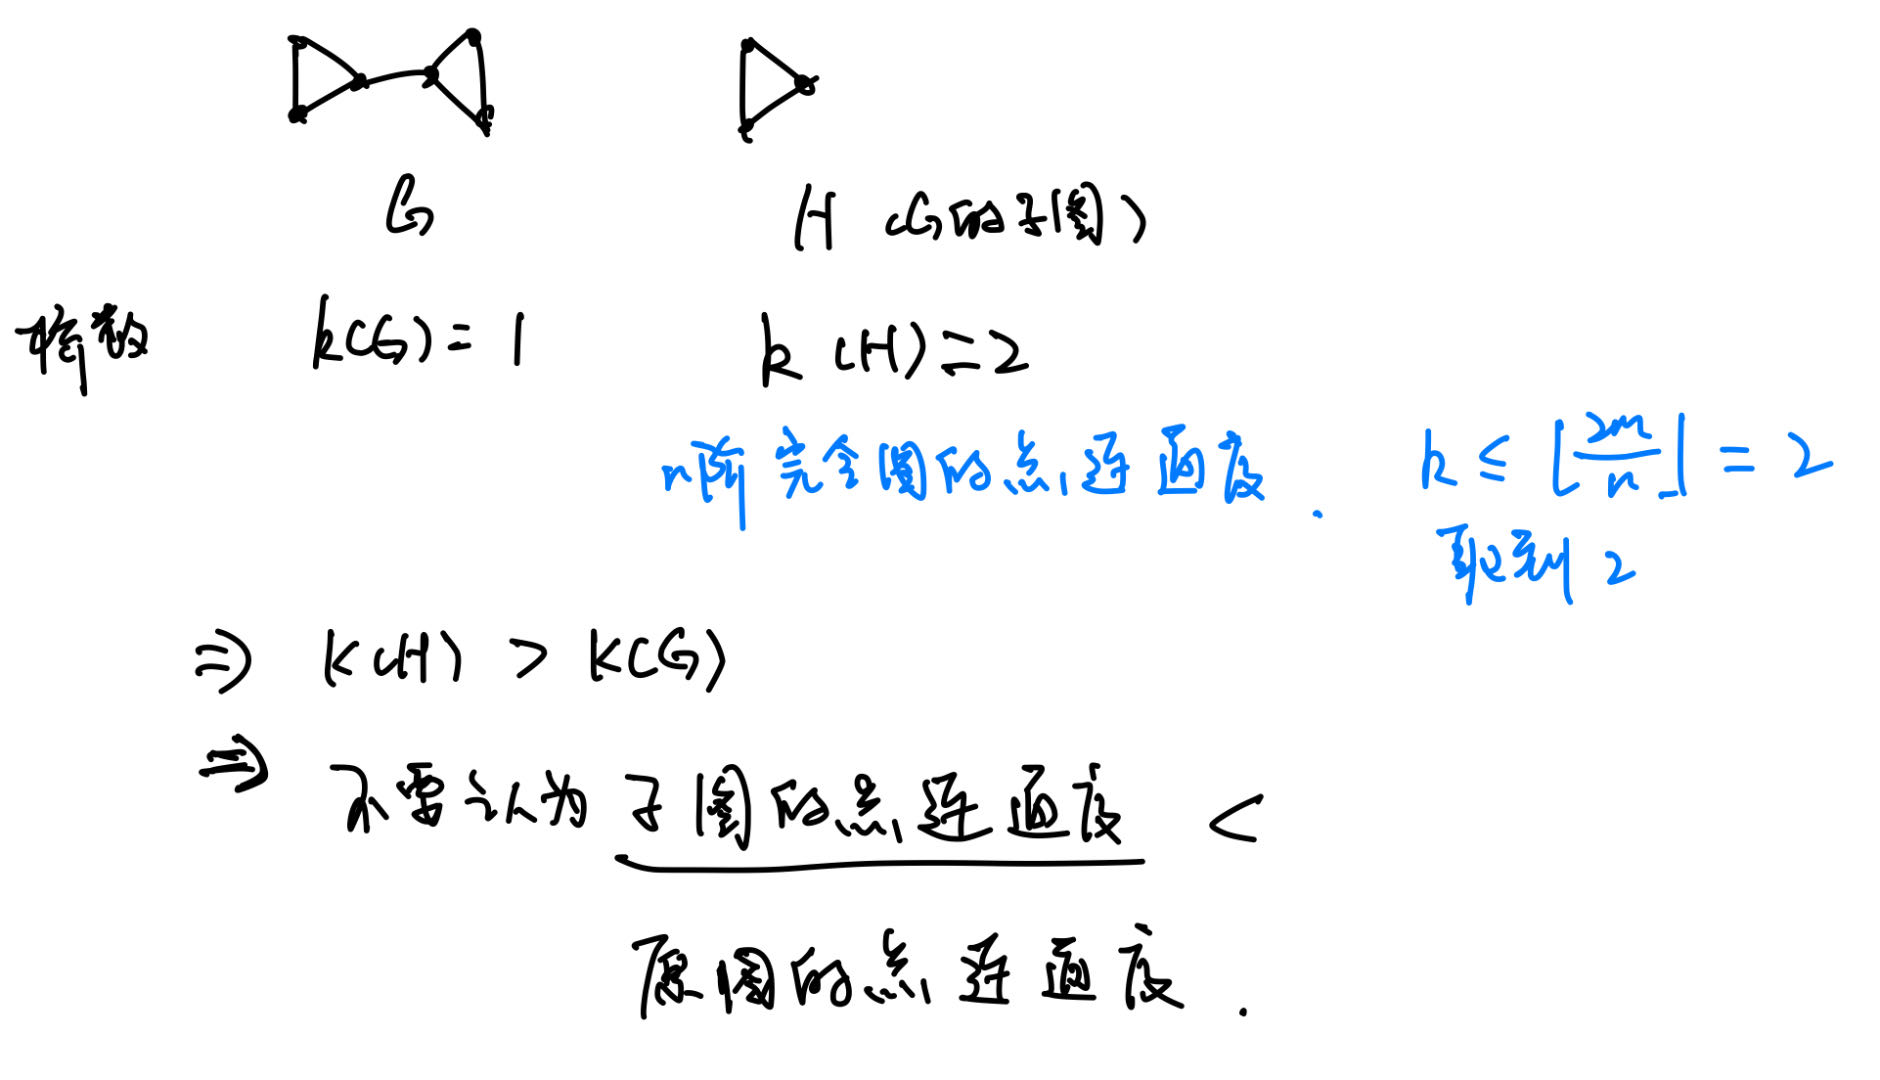 G
H (G的子图)
k(G) = 1 k(H) = 2
n阶完全图的点连通度. k ≤ ⌊2m/n⌋ = 2
取到2
⇒ K(H) > K(G)
⇒ 不要认为子图的点连通度 <
原图的点连通度.